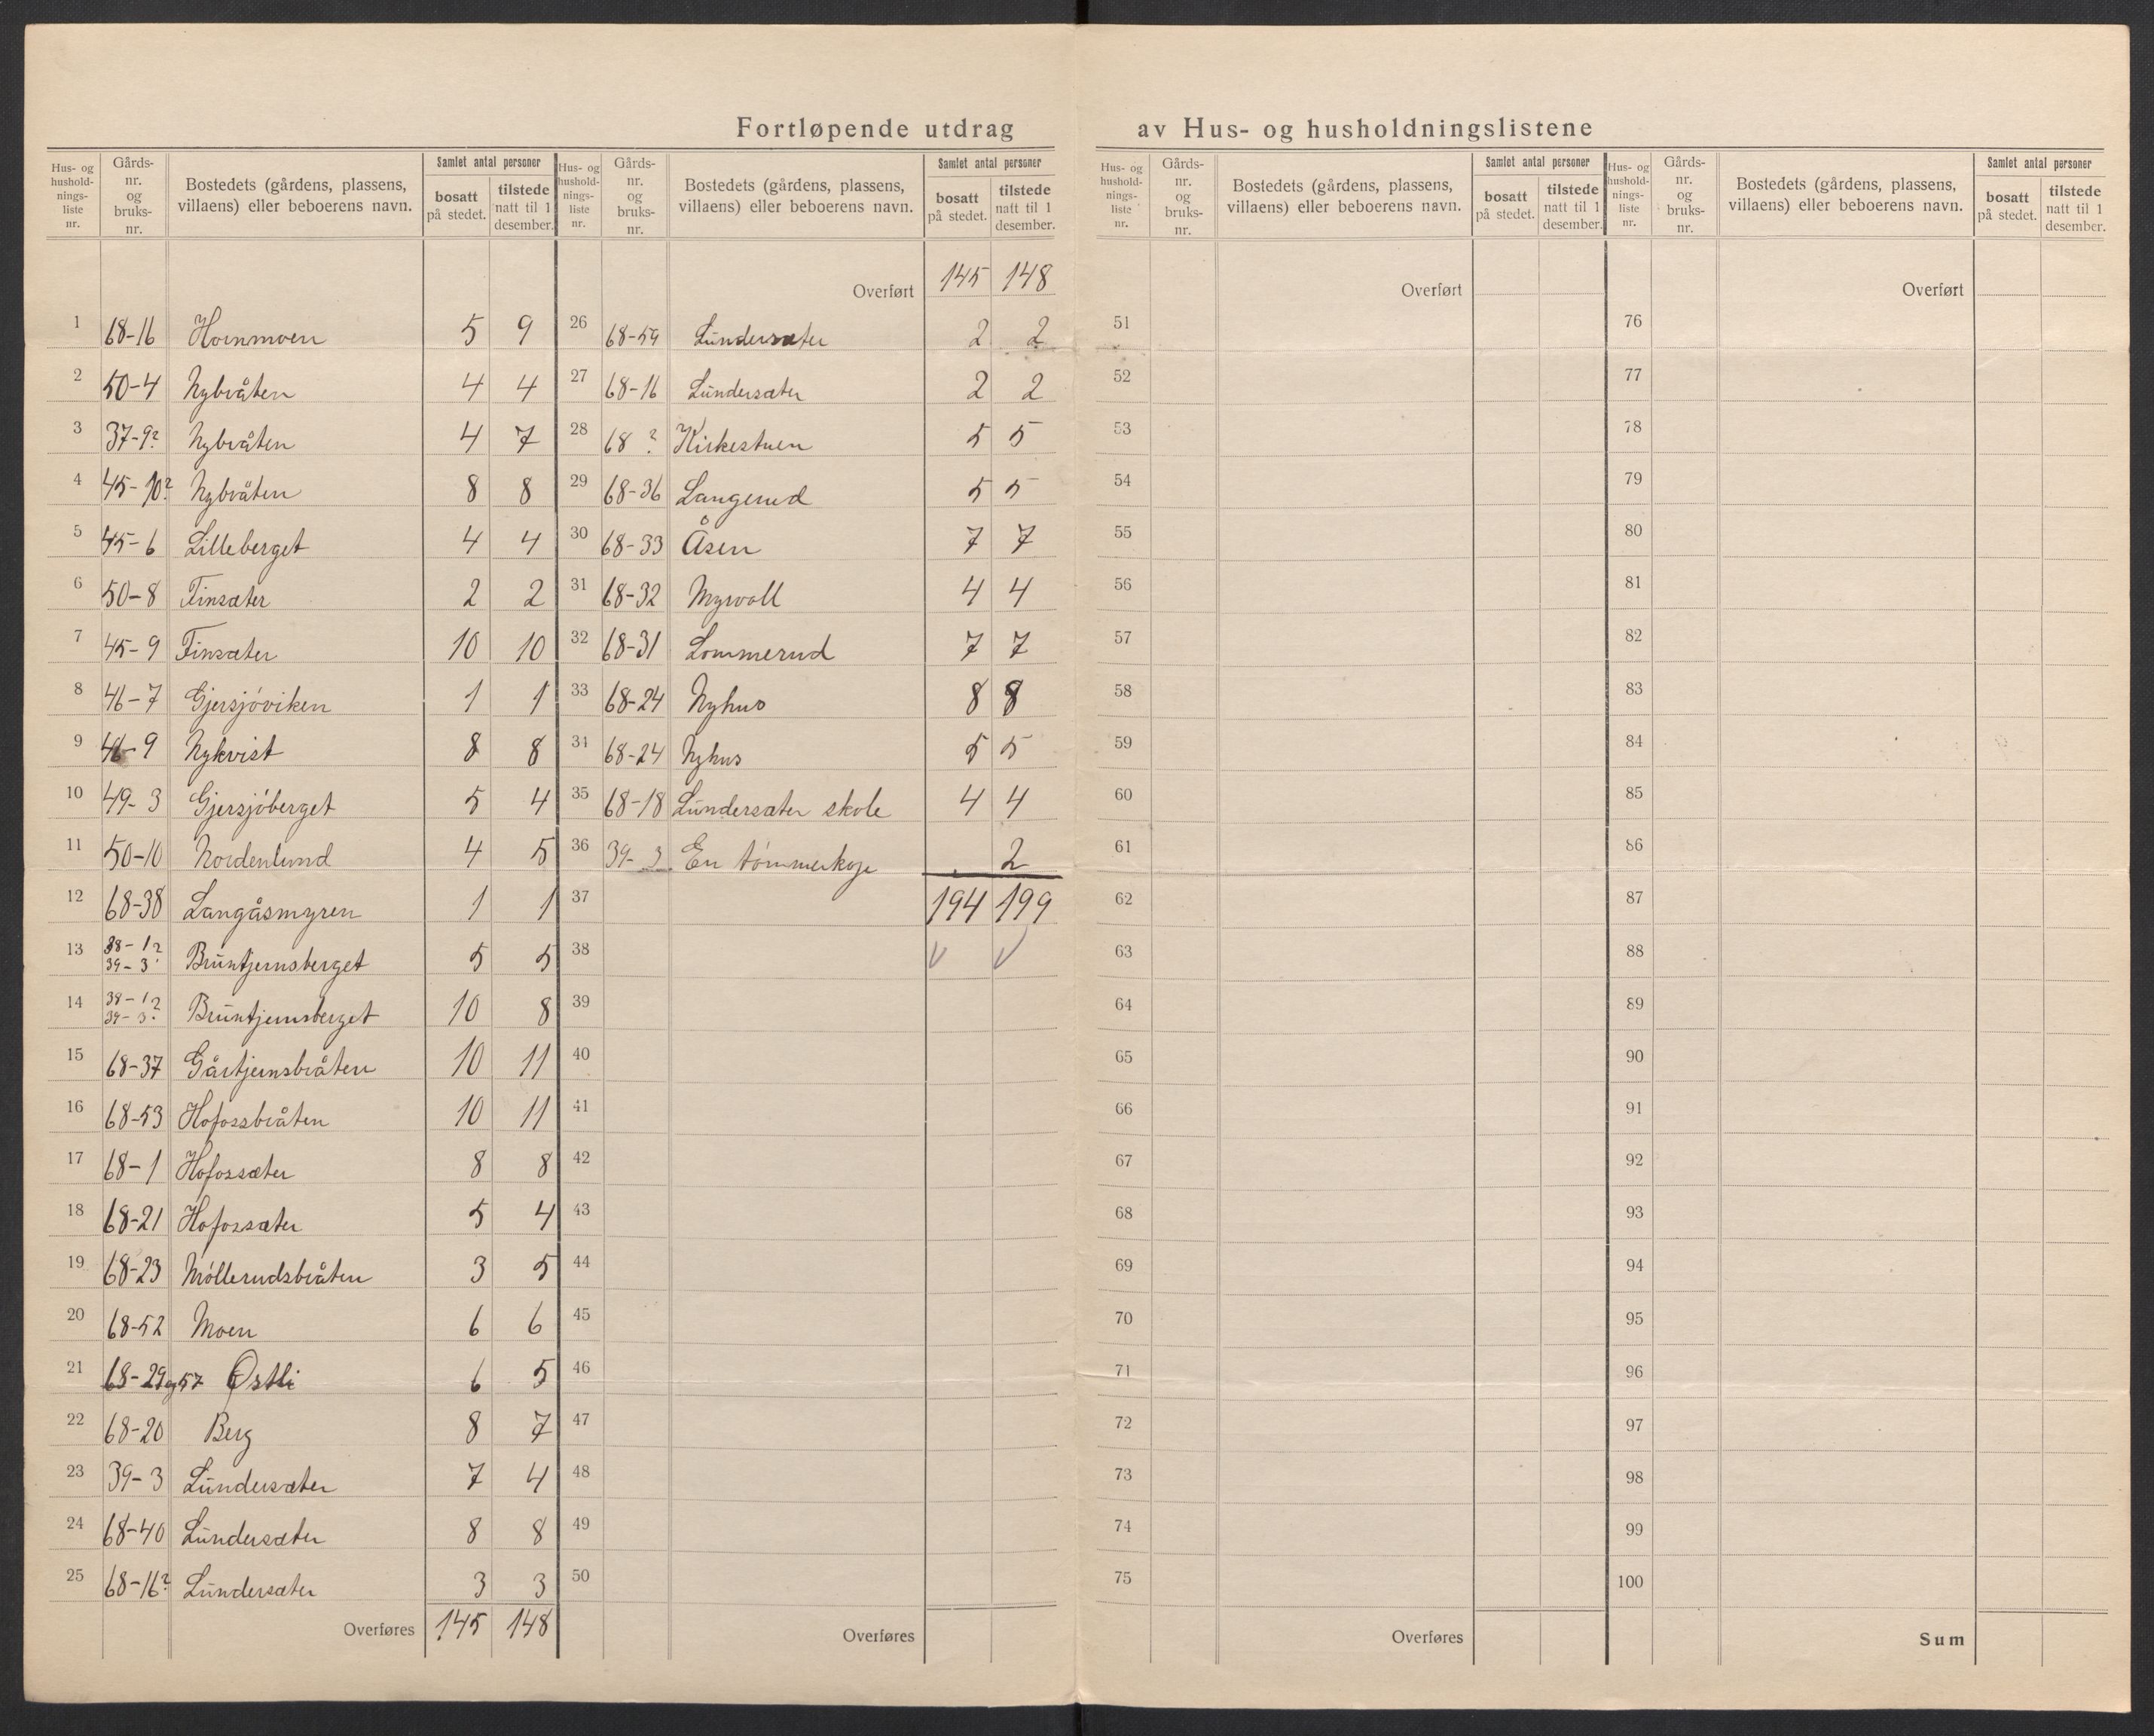 Fortløpende utdrag av Hus- og husholdningslistene
Hus- og hushold- nings- liste nr. | Gårds- nr. og bruks- nr. | Bostedets (gårdens, plassens, villaens) eller beboerens navn. | Samlet antal personer | bosatt på stedet. | tilstede natt til 1 desember.
1 68-16 Hornmoen 5 9
2 50-4 Nybråten 4 4
3 37-9? Nybråten 4 7
4 45-10? Nybråten 8 8
5 45-6 Lilleberget 4 4
6 50-8 Finsæter 2 2
7 45-9 Finsæter 10 10
8 46-7 Gjersjöviken 1 1
9 46-9 Nykvist 8 8
10 49-3 Gjersjöberget 5 4
11 50-10 Nordenlund 4 5
12 68-38 Langåsmyren 1 1
13 38-1? 39-3? Bruntjernsberget 5 5
14 38-1? 39-3? Bruntjernsberget 10 8
15 68-37 Gårtjernsbråten 10 11
16 68-53 Hofossbråten 10 11
17 68-1 Hofossæter 8 8
18 68-21 Hofossæter 5 4
19 68-23 Möllerudsbråten 3 5
20 68-52 Moen 6 6
21 68-29 og 57 Østli 6 5
22 68-20 Berg 8 7
23 39-3 Lundersæter 7 4
24 68-40 Lundersæter 8 8
25 68-16? Lundersæter 3 3
Overføres 145 148
Hus- og hushold- nings- liste nr. | Gårds- nr. og bruks- nr. | Bostedets (gårdens, plassens, villaens) eller beboerens navn. | Samlet antal personer | bosatt på stedet. | tilstede natt til 1 desember.
Overført 145 148
26 68-59 Lundersæter 2 2
27 68-16 Lundersæter 2 2
28 68 ? Kirkestuen 5 5
29 68-36 Langerud 5 5
30 68-33 Åsen 7 7
31 68-32 Myrvoll 4 4
32 68-31 Lommerud 7 7
33 68-24 Nyhus 8 8
34 68-24 Nyhus 5 5
35 68-18 Lundersæter skole 4 4
36 39-3 En tömmerkoje 2
37 194 199
38
39
40
41
42
43
44
45
46
47
48
49
50
Overføres
Hus- og hushold- nings- liste nr. | Gårds- nr. og bruks- nr. | Bostedets (gårdens, plassens, villaens) eller beboerens navn. | Samlet antal personer | bosatt på stedet. | tilstede natt til 1 desember.
Overført
51
52
53
54
55
56
57
58
59
60
61
62
63
64
65
66
67
68
69
70
71
72
73
74
75
Overføres
Hus- og hushold- nings- liste nr. | Gårds- nr. og bruks- nr. | Bostedets (gårdens, plassens, villaens) eller beboerens navn. | Samlet antal personer | bosatt på stedet. | tilstede natt til 1 desember.
Overført
76
77
78
79
80
81
82
83
84
85
86
87
88
89
90
91
92
93
94
95
96
97
98
99
100
Sum